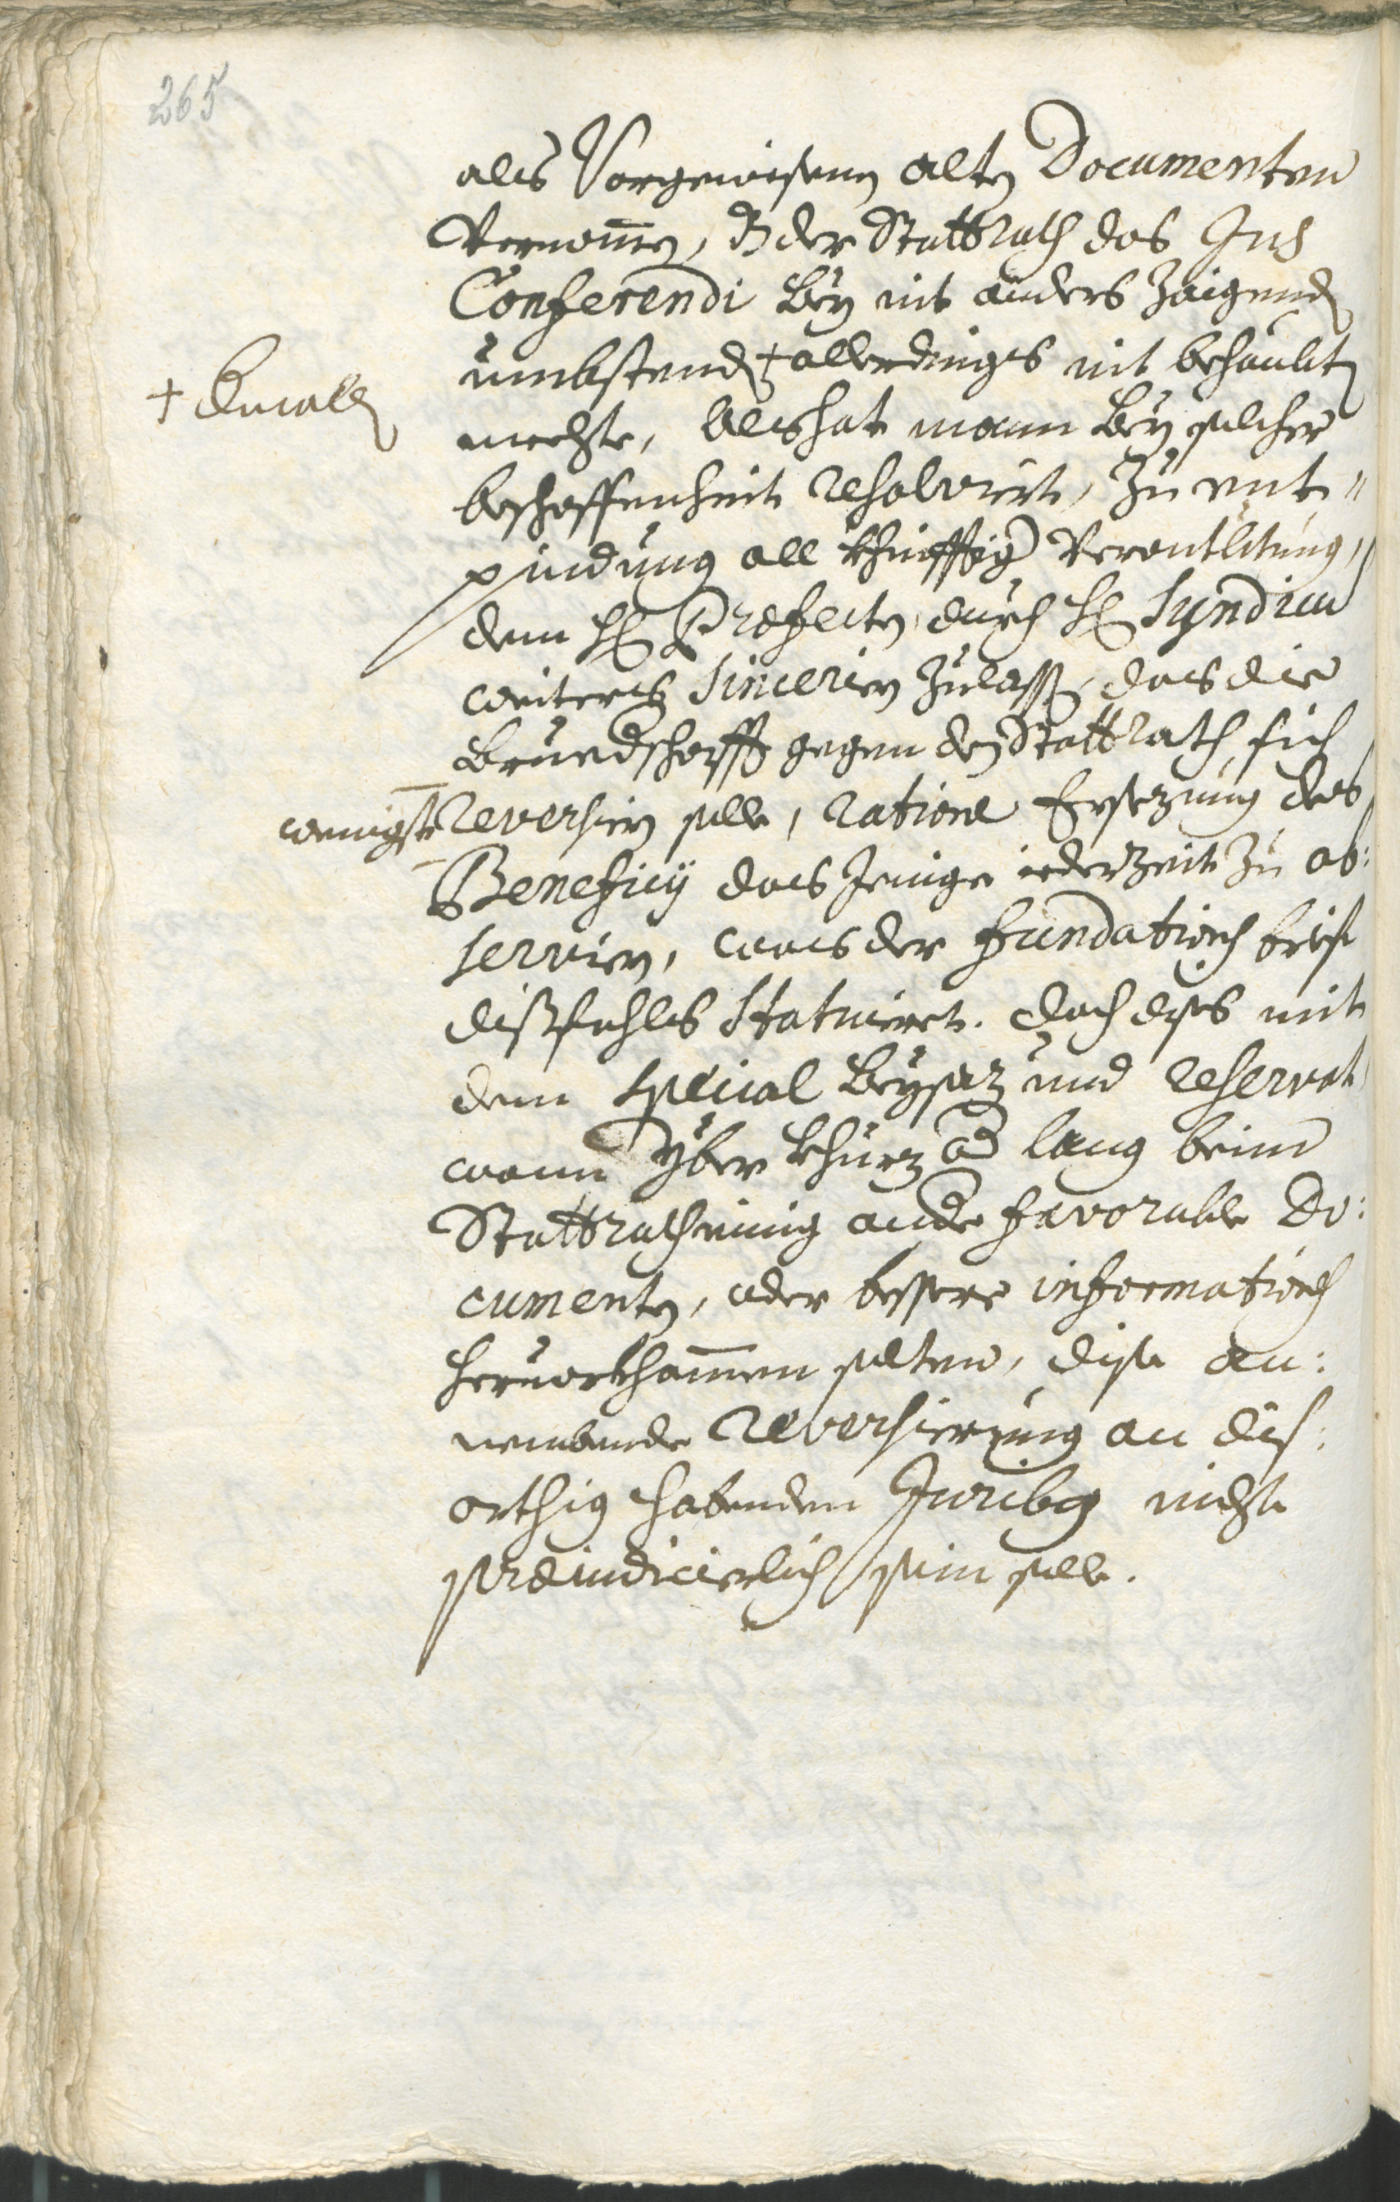 265
als Vorgewisenen alten Documenten
Vernomen, dz der Stattrath das Jus
Conferendi bey nit anders zaigenden
umbstenden + allerdings nit behaubten
+ dermallen
mechte, Als hat mann bey solcher
beschaffenheit resolviert, zu ent=
pindung all khinfftiger Verantwortung,
dem H: Præfecten durch H: Syndicum
weiters sincerien zulassen, das die
Bruedschafft gegen den Stattrath sich
wenigst reversiern solle, ratione Ersezung des
Beneficij das Jenige iederzeit zu ob:
serviern, was der fundations brief
dißfahls statuiert. doch dises mit
dem special beysaz und reservat
wann yber khurz od lang beim
Stattrath einig andere favorable Do:
cumenten, oder bessere information
hervorkhommen solten, dise an:
nembende reversierung an dis:
orthig habenden Juribus nichts
præiudicierlich sein solle.